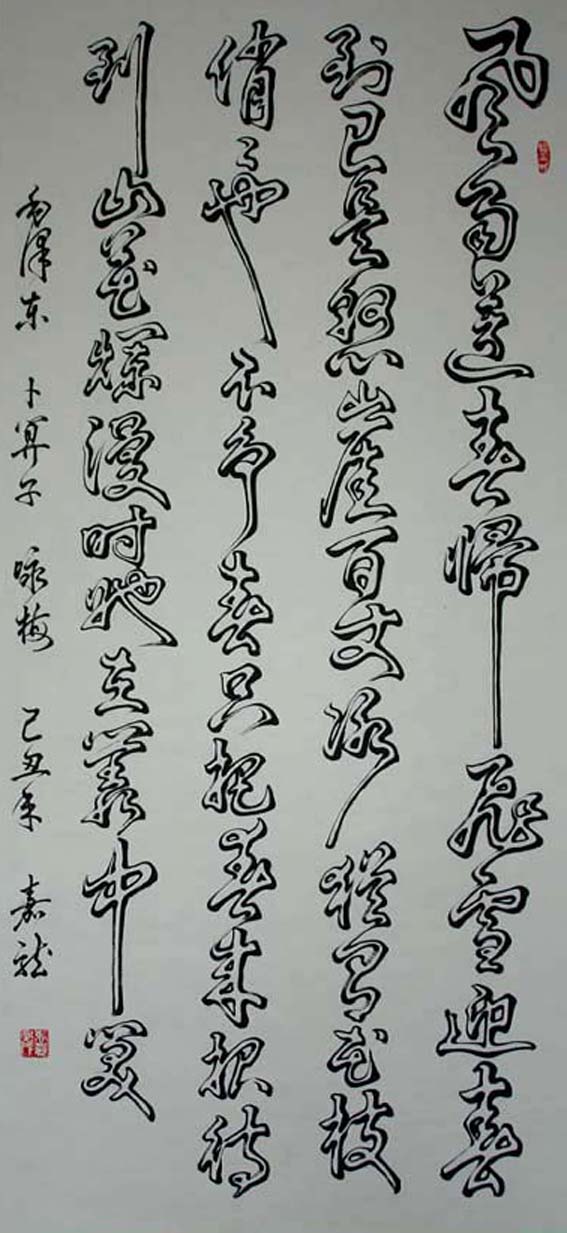 风雨送春歸飛雪迎春
到已是悬崖百丈冰猶有花枝
俏〻也不争春只把春来报待
到山花爛漫时她在叢中笑
毛澤东 卜算子 咏梅 己丑年 嘉龙